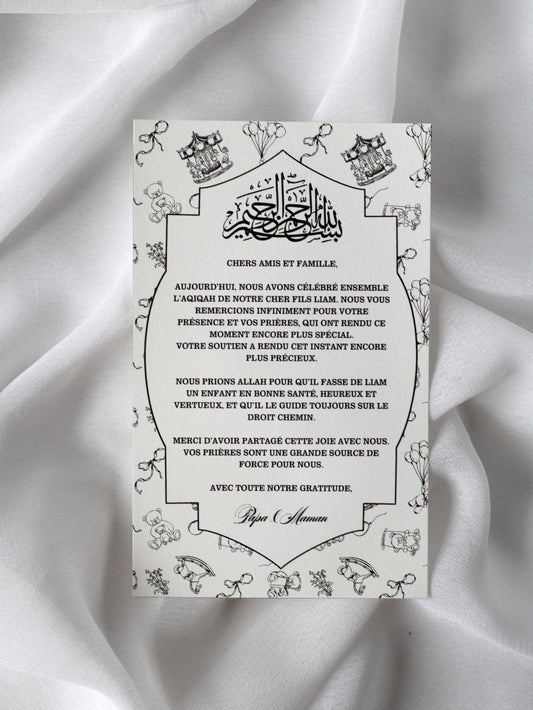 بسم الله الرحمن الرحيم
CHERS AMIS ET FAMILLE,
AUJOURD'HUI, NOUS AVONS CÉLÉBRÉ ENSEMBLE
L'AQIQAH DE NOTRE CHER FILS LIAM. NOUS VOUS
REMERCIONS INFINIMENT POUR VOTRE
PRÉSENCE ET VOS PRIÈRES, QUI ONT RENDU CE
MOMENT ENCORE PLUS SPÉCIAL.
VOTRE SOUTIEN A RENDU CET INSTANT ENCORE
PLUS PRÉCIEUX.
NOUS PRIONS ALLAH POUR QU'IL FASSE DE LIAM
UN ENFANT EN BONNE SANTÉ, HEUREUX ET
VERTUEUX, ET QU'IL LE GUIDE TOUJOURS SUR LE
DROIT CHEMIN.
MERCI D'AVOIR PARTAGÉ CETTE JOIE AVEC NOUS.
VOS PRIÈRES SONT UNE GRANDE SOURCE DE
FORCE POUR NOUS.
AVEC TOUTE NOTRE GRATITUDE,
Papa & Maman